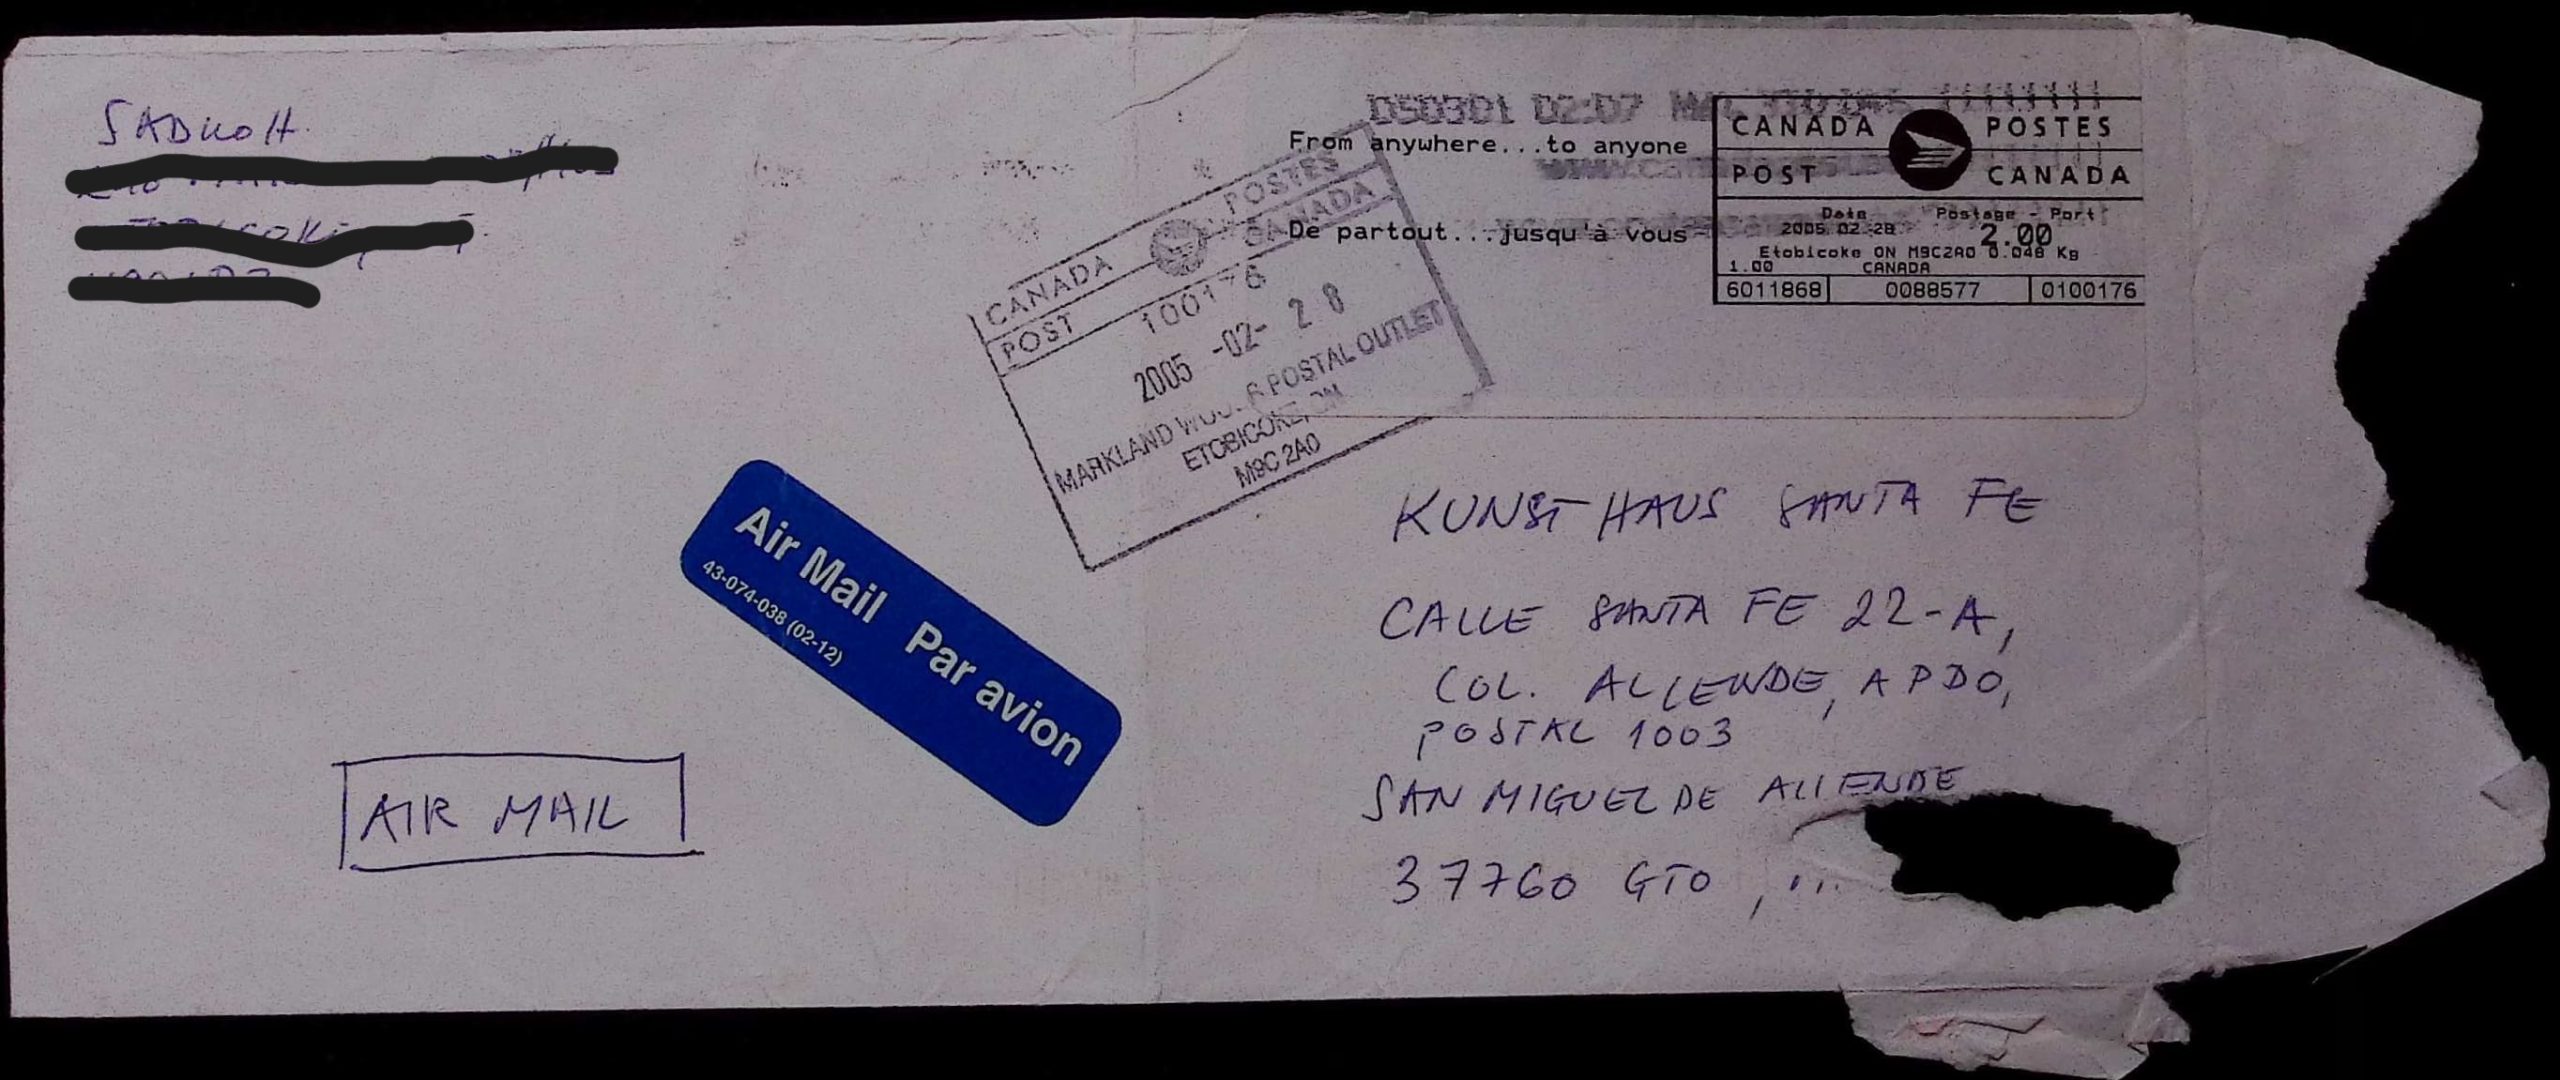 SADKOH
050301 02:07
From anywhere...to anyone
De partout...jusqu'à vous
CANADA POSTES
POST CANADA
Date Postage - Port
2005 02 28 2.00
Etobicoke ON M9C2A0 0.048 Kg
1.00 CANADA
6011868 0088577 0100176
CANADA POSTES
POST CANADA
100176
2005 -02- 28
MARKLAND POSTAL OUTLET
ETOBICOKE, ON
M9C 2A0
Air Mail Par avion
43-074-038 (02-12)
AIR MAIL
KUNSTHAUS SANTA FE
CALLE SANTA FE 22-A,
COL. ALLENDE, APDO,
POSTAL 1003
SAN MIGUEL DE ALLENDE
37760 GTO,